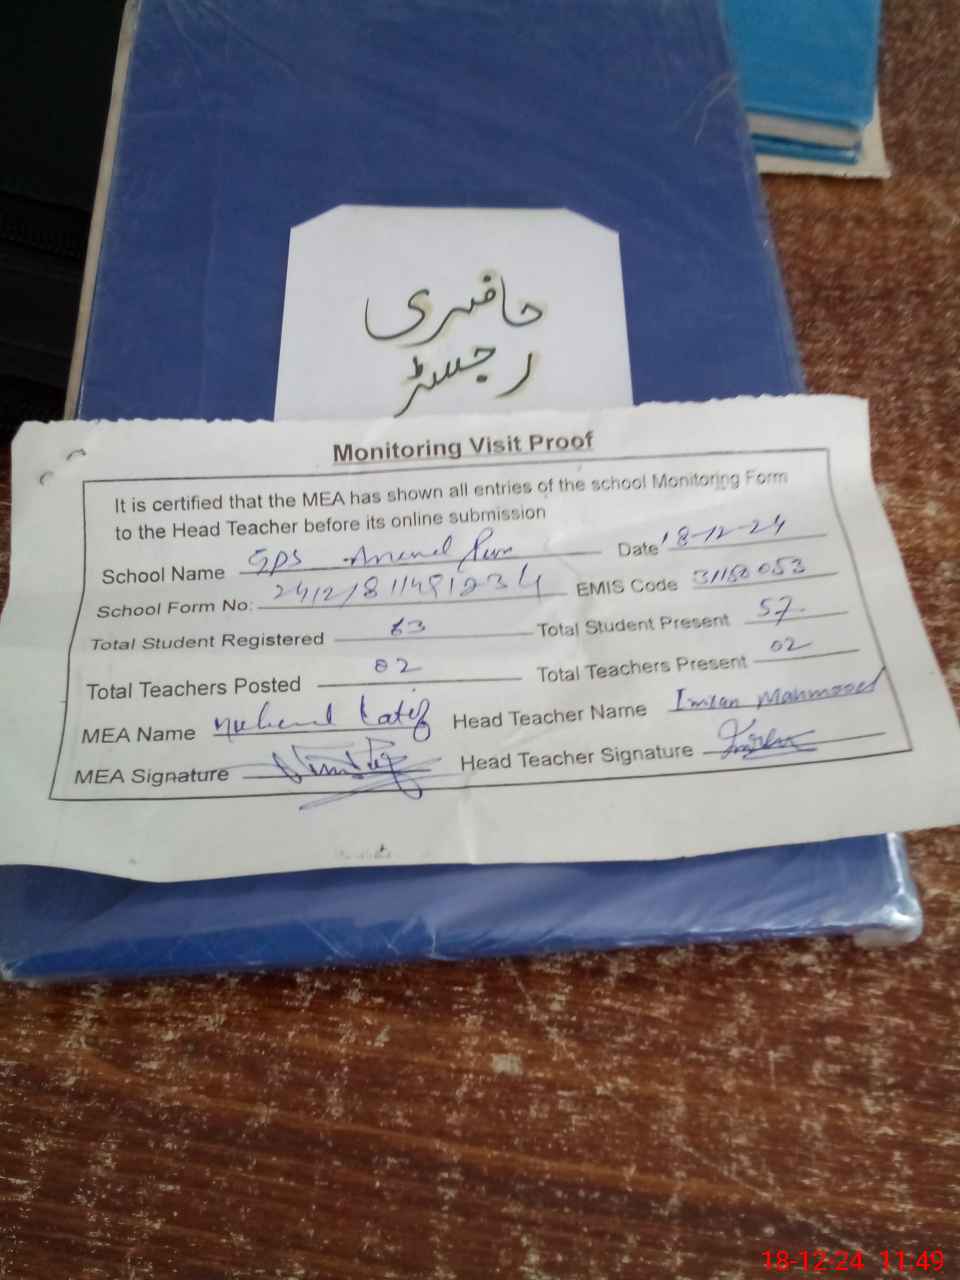 حاضری
رجسٹر
Monitoring Visit Proof
It is certified that the MEA has shown all entries of the school Monitoring Form
to the Head Teacher before its online submission
School Name GPS Date 18-12-24
School Form No: EMIS Code 31150053
Total Student Registered 63 Total Student Present 57
Total Teachers Posted 02 Total Teachers Present 02
MEA Name Head Teacher Name Imran Mahmood
MEA Signature Head Teacher Signature
18-12-24 11:49